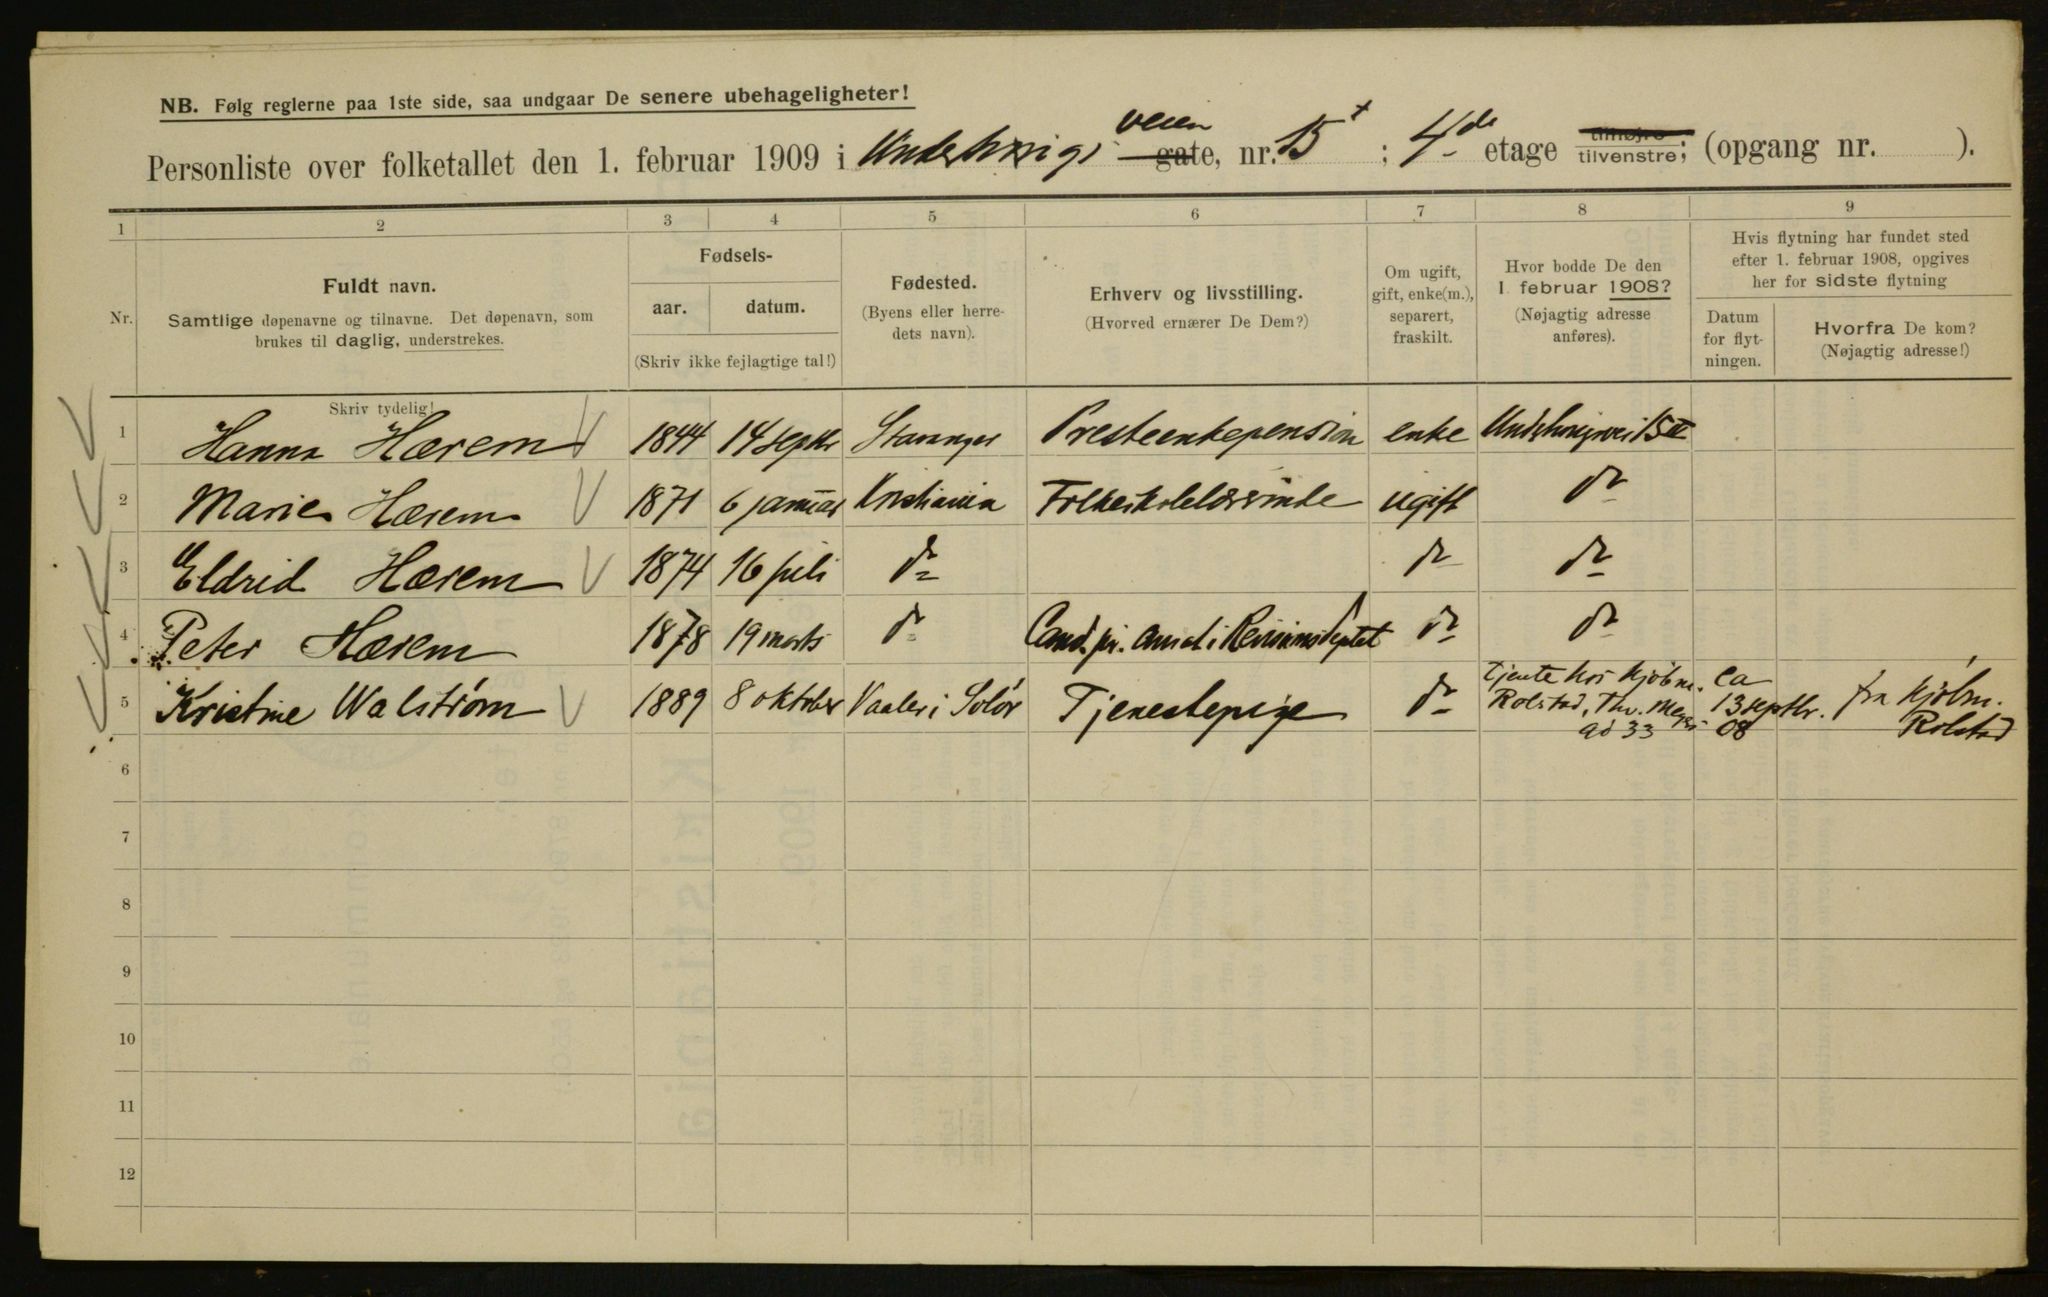 NB. Følg reglerne paa 1ste side, saa undgaar De senere ubehageligheter!
Personliste over folketallet den 1. februar 1909 i Underhaugs veien gate, nr. 15 ; 4de etage tilhøjre tilvenstre; (opgang nr. ).
1 2 3 4 5 6 7 8 9
Nr.
Fuldt navn.
Samtlige døpenavne og tilnavne. Det døpenavn, som
brukes til daglig, understrekes.
Skriv tydelig!
Fødsels-
aar. datum.
(Skriv ikke fejlagtige tal!)
Fødested.
(Byens eller herre-
dets navn).
Erhverv og livsstilling.
(Hvorved ernærer De Dem?)
Om ugift,
gift, enke(m.),
separert,
fraskilt.
Hvor bodde De den
1. februar 1908?
(Nøjagtig adresse
anføres).
Hvis flytning har fundet sted
efter 1. februar 1908, opgives
her for sidste flytning
Datum
for flyt-
ningen.
Hvorfra De kom?
(Nøjagtig adresse!)
1 Hanna Hærem 1844 14 septbr Stavanger Presteenkepension enke
2 Marie Hærem 1871 6 januar Kristiania Folkeskolelærerinde ugift do
3 Eldrid Hærem 1874 16 juli do do do
4 Peter Hærem 1878 19 marts do Cand. jur. ansat i Revisionsdeptet do do
5 Kristine Walstrøm 1889 8 oktober Vaaler i Solør Tjenestepige do Tjente hos kjøbm. Rolstad, Thv. Meyers gd 33 ca 13 septbr. 08 fra kjøbm. Rolstad
6
7
8
9
10
11
12